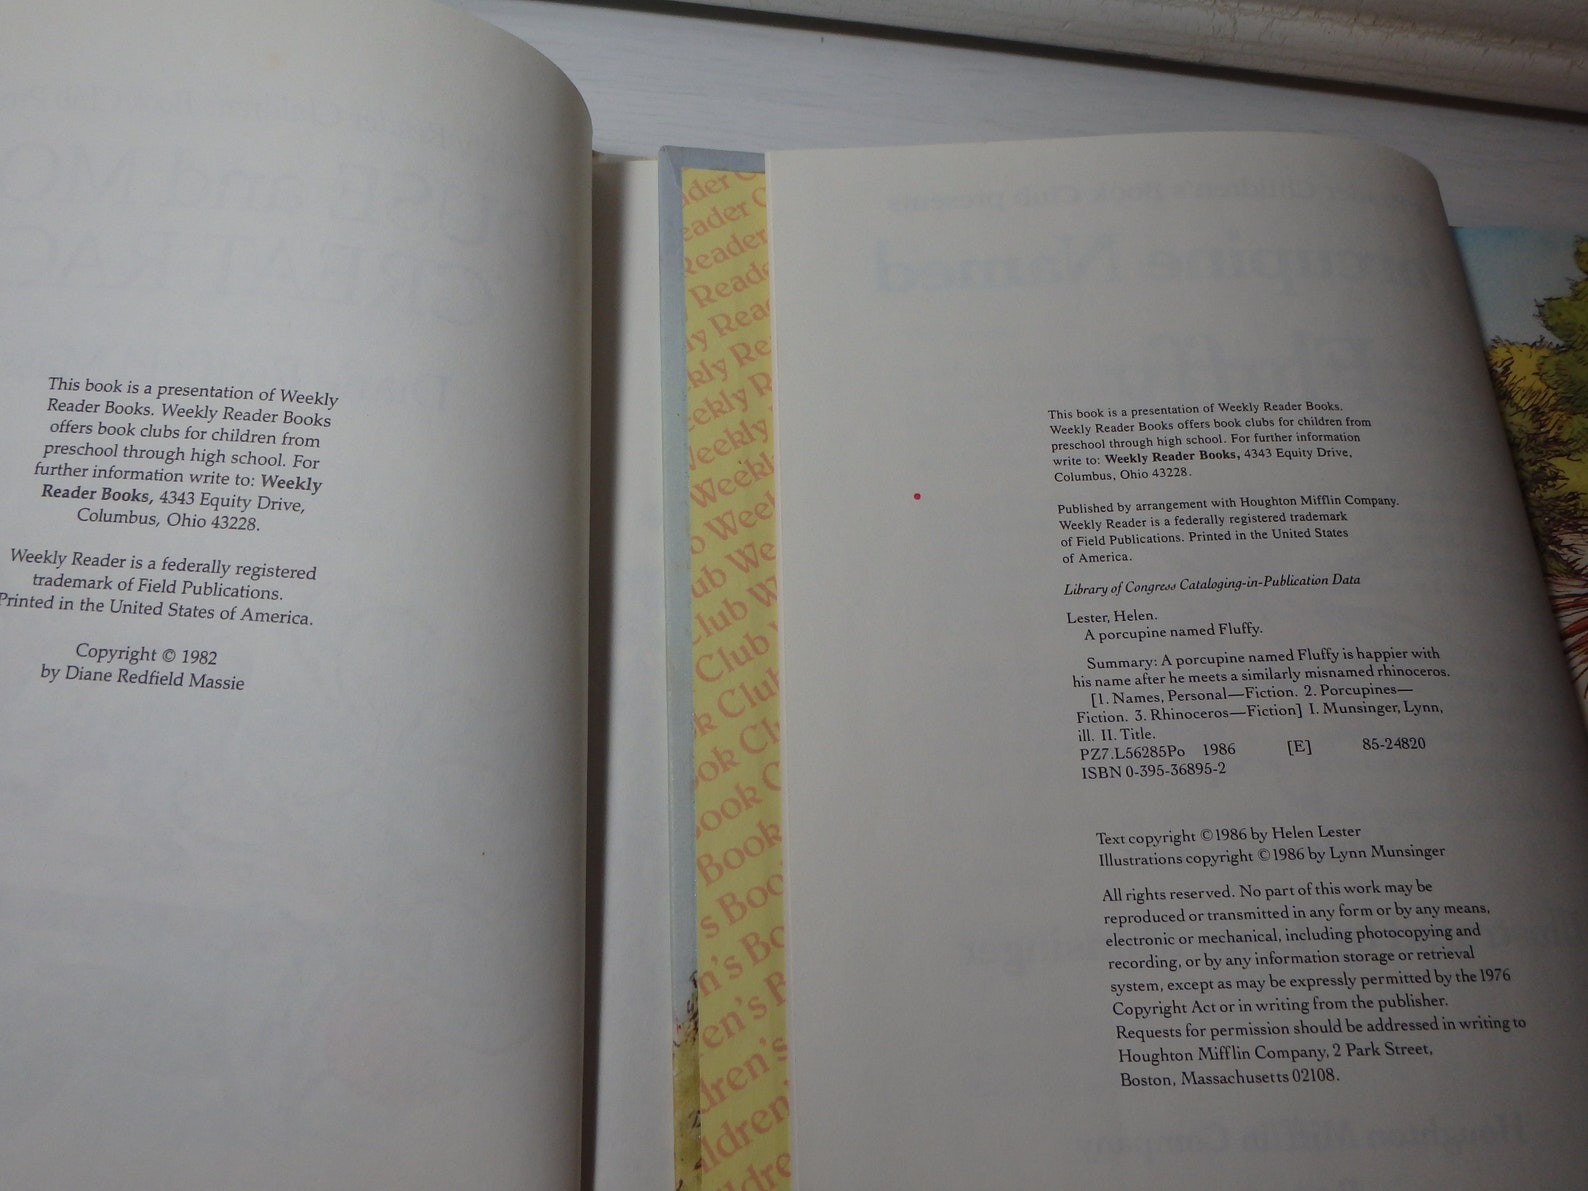 This book is a presentation of Weekly
Reader Books. Weekly Reader Books
offers book clubs for children from
preschool through high school. For
further information write to: Weekly
Reader Books, 4343 Equity Drive,
Columbus, Ohio 43228.
Weekly Reader is a federally registered
trademark of Field Publications.
Printed in the United States of America.
Copyright © 1982
by Diane Redfield Massie
der
eader
Reader
Reader
Rea
Re
R
eekly
Weekly
Weekl
Week
ub We
Club W
Club
Club
Clu
ook C
ook
Book
s Boo
n's Bo
en's B
dren's
ildren
dre
This book is a presentation of Weekly Reader Books.
Weekly Reader Books offers book clubs for children from
preschool through high school. For further information
write to: Weekly Reader Books, 4343 Equity Drive,
Columbus, Ohio 43228.
Published by arrangement with Houghton Mifflin Company.
Weekly Reader is a federally registered trademark
of Field Publications. Printed in the United States
of America.
Library of Congress Cataloging-in-Publication Data
Lester, Helen.
A porcupine named Fluffy.
Summary: A porcupine named Fluffy is happier with
his name after he meets a similarly misnamed rhinoceros.
[1. Names, Personal—Fiction. 2. Porcupines—
Fiction. 3. Rhinoceros—Fiction] I. Munsinger, Lynn,
ill. II. Title.
PZ7.L56285Po 1986 [E] 85-24820
ISBN 0-395-36895-2
Text copyright © 1986 by Helen Lester
Illustrations copyright © 1986 by Lynn Munsinger
All rights reserved. No part of this work may be
reproduced or transmitted in any form or by any means,
electronic or mechanical, including photocopying and
recording, or by any information storage or retrieval
system, except as may be expressly permitted by the 1976
Copyright Act or in writing from the publisher.
Requests for permission should be addressed in writing to
Houghton Mifflin Company, 2 Park Street,
Boston, Massachusetts 02108.